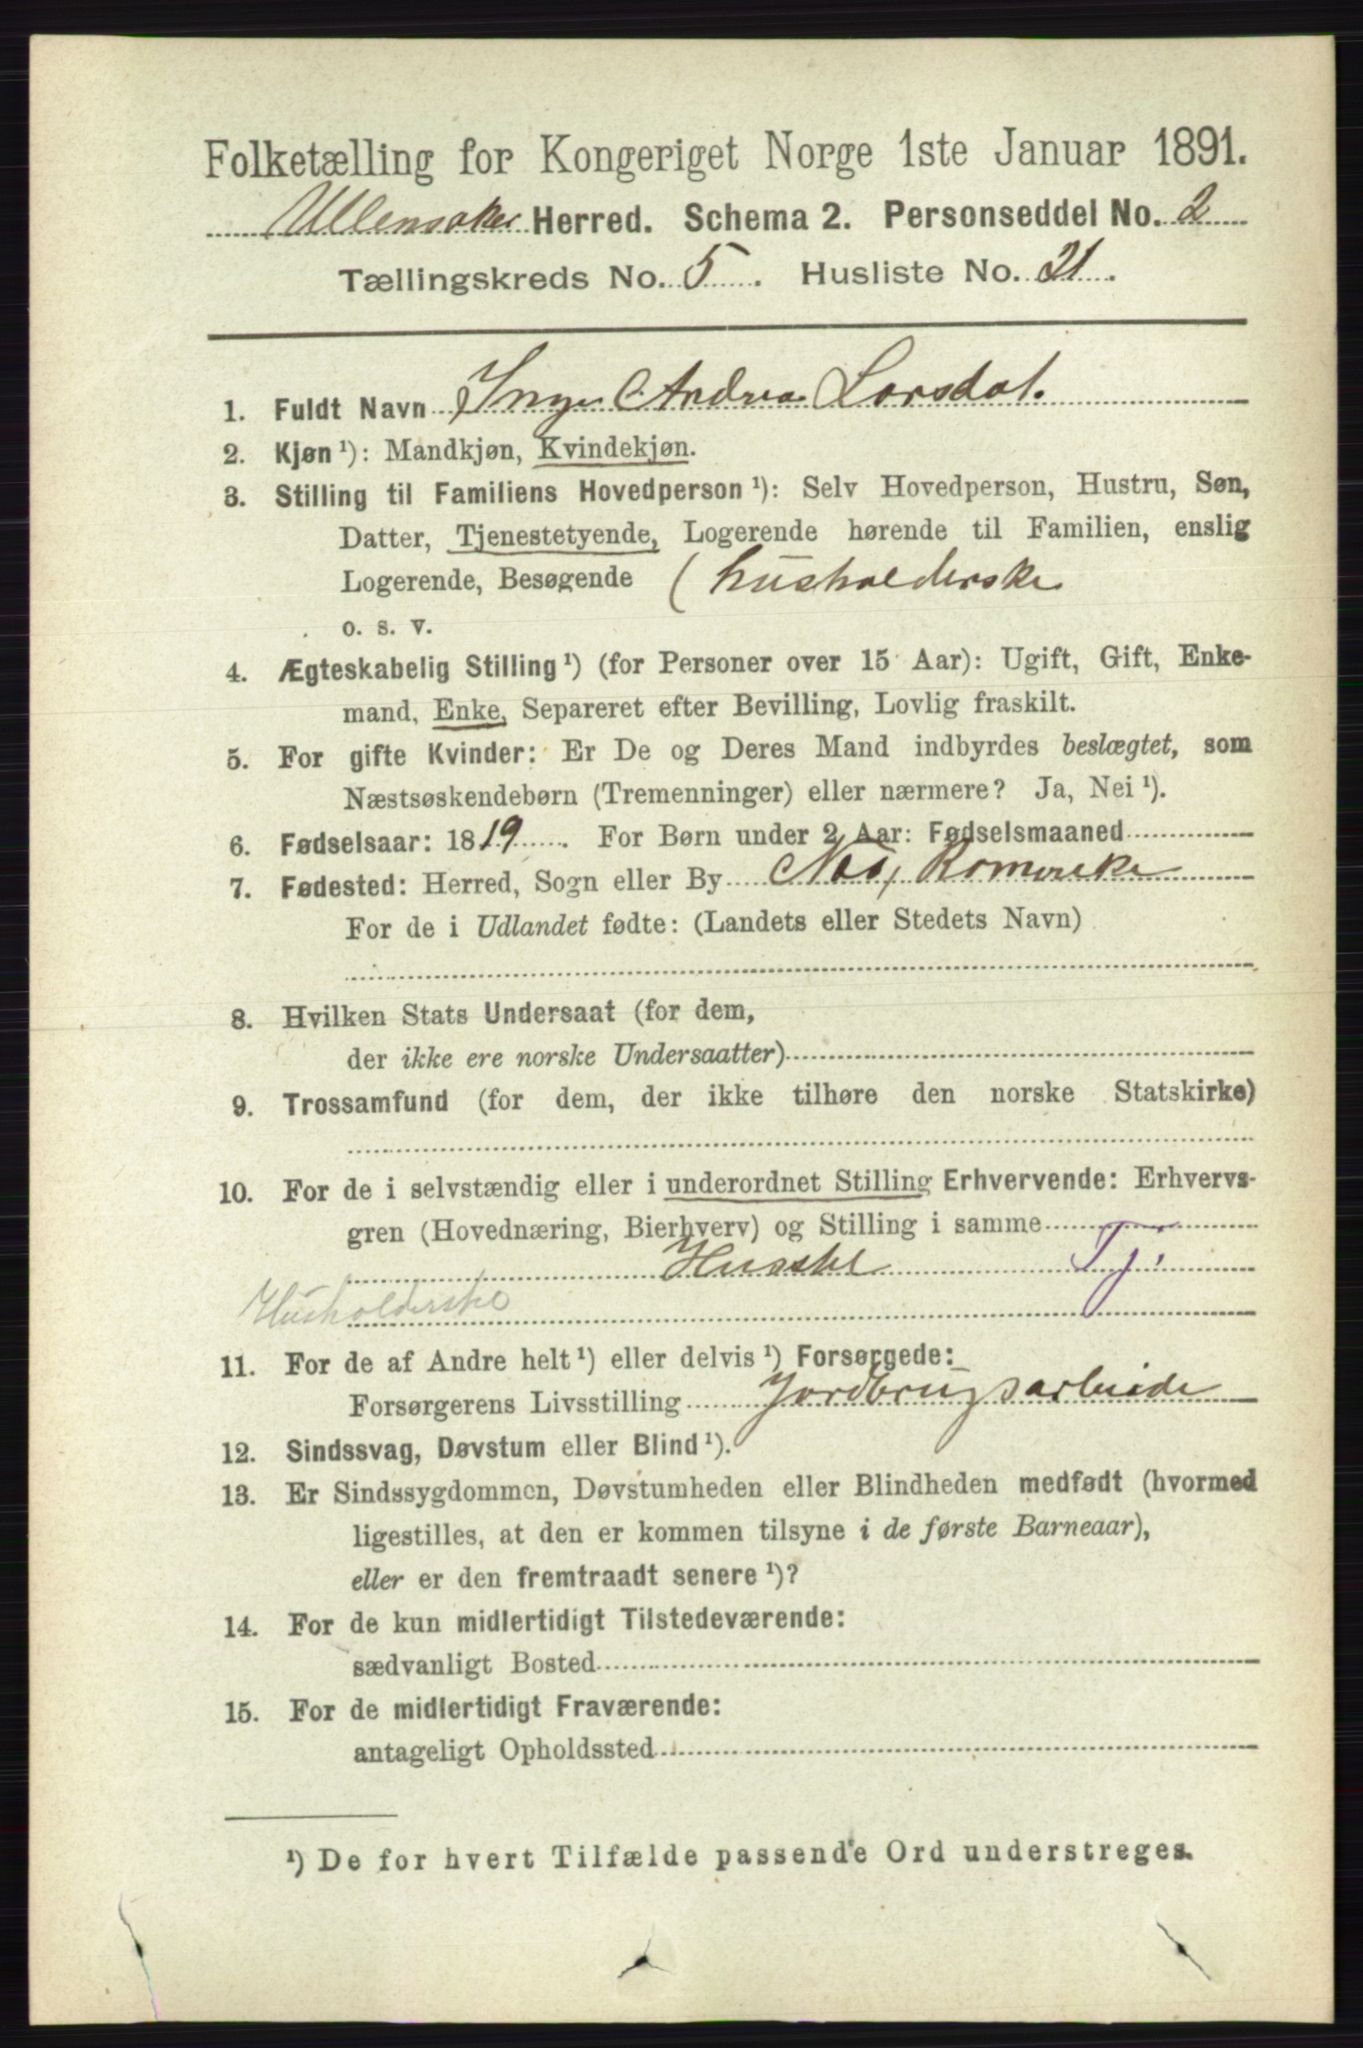 Folketælling for Kongeriget Norge 1ste Januar 1891.
Ullensaker Herred. Schema 2. Personseddel No. 2
Tællingskreds No. 5. Husliste No. 21.
1. Fuldt Navn Inge Andrea Lorsdal.
2. Kjøn ¹): Mandkjøn, Kvindekjøn.
3. Stilling til Familiens Hovedperson ¹): Selv Hovedperson, Hustru, Søn,
Datter, Tjenestetyende, Logerende hørende til Familien, enslig
Logerende, Besøgende (husholderske
o. s. v.
4. Ægteskabelig Stilling ¹) (for Personer over 15 Aar): Ugift, Gift, Enke-
mand, Enke, Separeret efter Bevilling, Lovlig fraskilt.
5. For gifte Kvinder: Er De og Deres Mand indbyrdes beslægtet, som
Næstsøskendebørn (Tremenninger) eller nærmere? Ja, Nei ¹).
6. Fødselsaar: 1819. For Børn under 2 Aar: Fødselsmaaned
7. Fødested: Herred, Sogn eller By Næs, Romerike
For de i Udlandet fødte: (Landets eller Stedets Navn)
8. Hvilken Stats Undersaat (for dem,
der ikke ere norske Undersaatter)
9. Trossamfund (for dem, der ikke tilhøre den norske Statskirke)
10. For de i selvstændig eller i underordnet Stilling Erhvervende: Erhvervs-
gren (Hovednæring, Bierhverv) og Stilling i samme
Husstel Tj.
Husholderske
11. For de af Andre helt ¹) eller delvis ¹) Forsørgede:
Forsørgerens Livsstilling Jordbrugsarbeide
12. Sindssvag, Døvstum eller Blind ¹).
13. Er Sindssygdommen, Døvstumheden eller Blindheden medfødt (hvormed
ligestilles, at den er kommen tilsyne i de første Barneaar),
eller er den fremtraadt senere ¹)?
14. For de kun midlertidigt Tilstedeværende:
sædvanligt Bosted
15. For de midlertidigt Fraværende:
antageligt Opholdssted
¹) De for hvert Tilfælde passende Ord understreges.